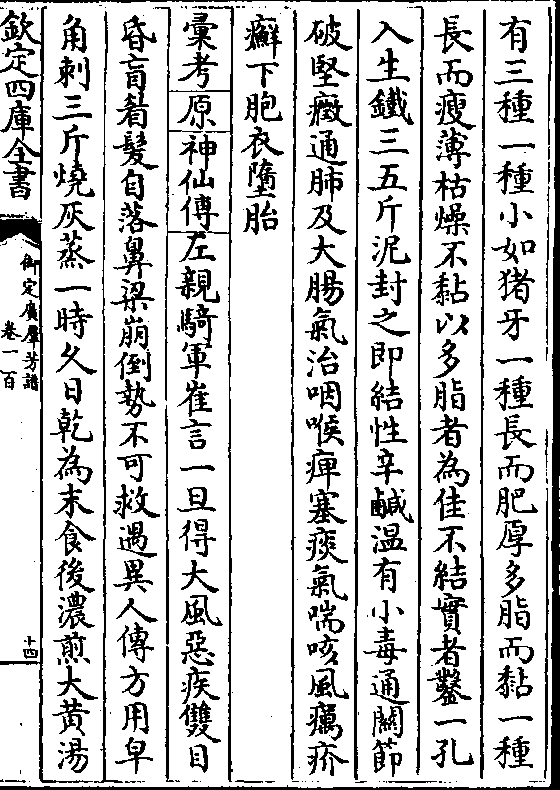 有三種一種小如猪牙一種長而肥厚多脂而黏一種
長而瘦薄枯燥不黏以多脂者為佳不結實者鑿一孔
入生鐵三五斤泥封之即結性辛鹹溫有小毒通關節
破堅癥通肺及大腸氣治咽喉痺塞痰氣喘咳風癘疥
癬下胞衣墮胎
彚考原神仙傳左親騎軍崔言一旦得大風惡疾雙目
昏盲眉髮自落鼻梁崩倒勢不可救遇異人傳方用皁
角刺三斤燒灰蒸一時久日乾為末食後濃煎大黃湯
欽定四庫全書
御定廣羣芳譜
卷一百
十四